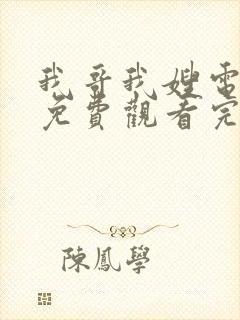 我哥我嫂電
免費觀看完
陳鳳學